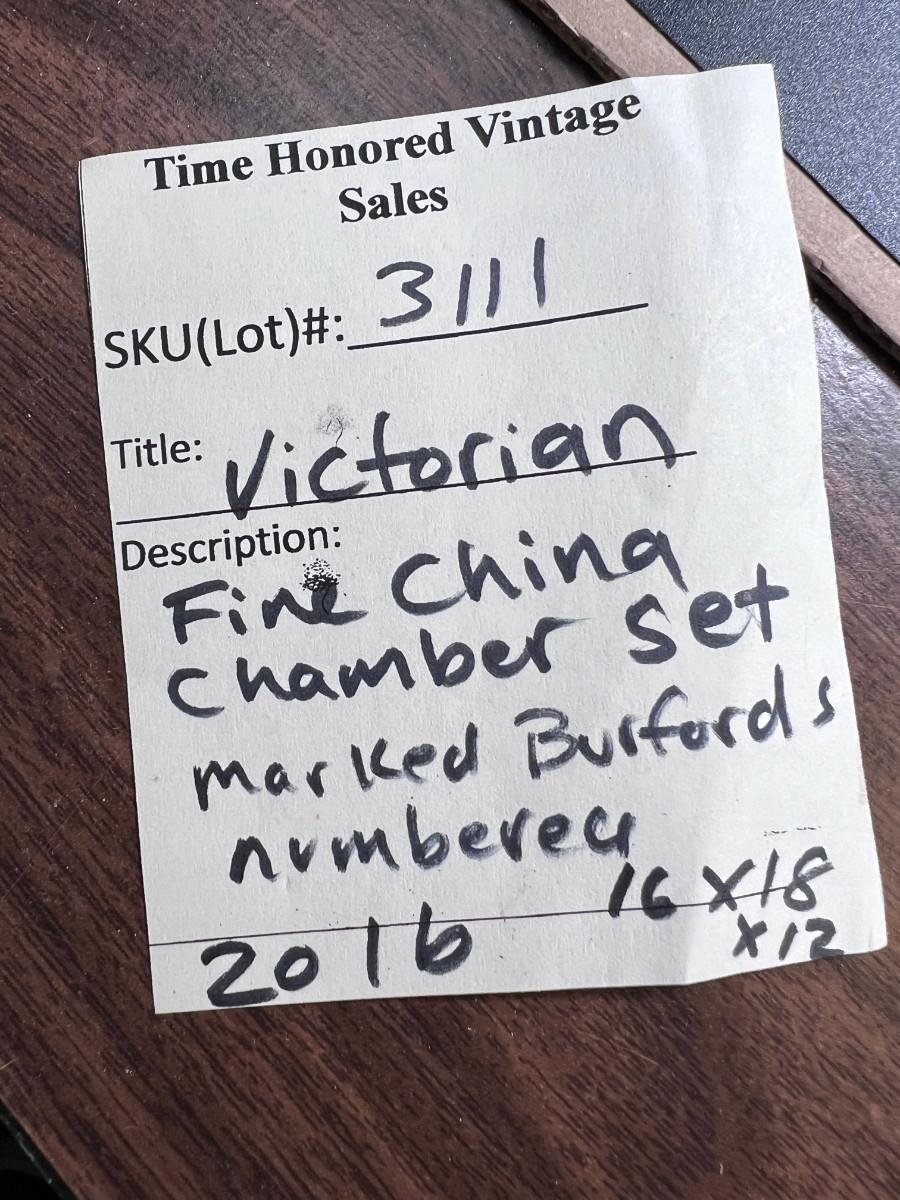 Time Honored Vintage
Sales
SKU(Lot)#: 3111
Title: Victorian
Description:
Fine China
Chamber Set
marked Burfords
numbered
16 X 18
X 12
20 lb